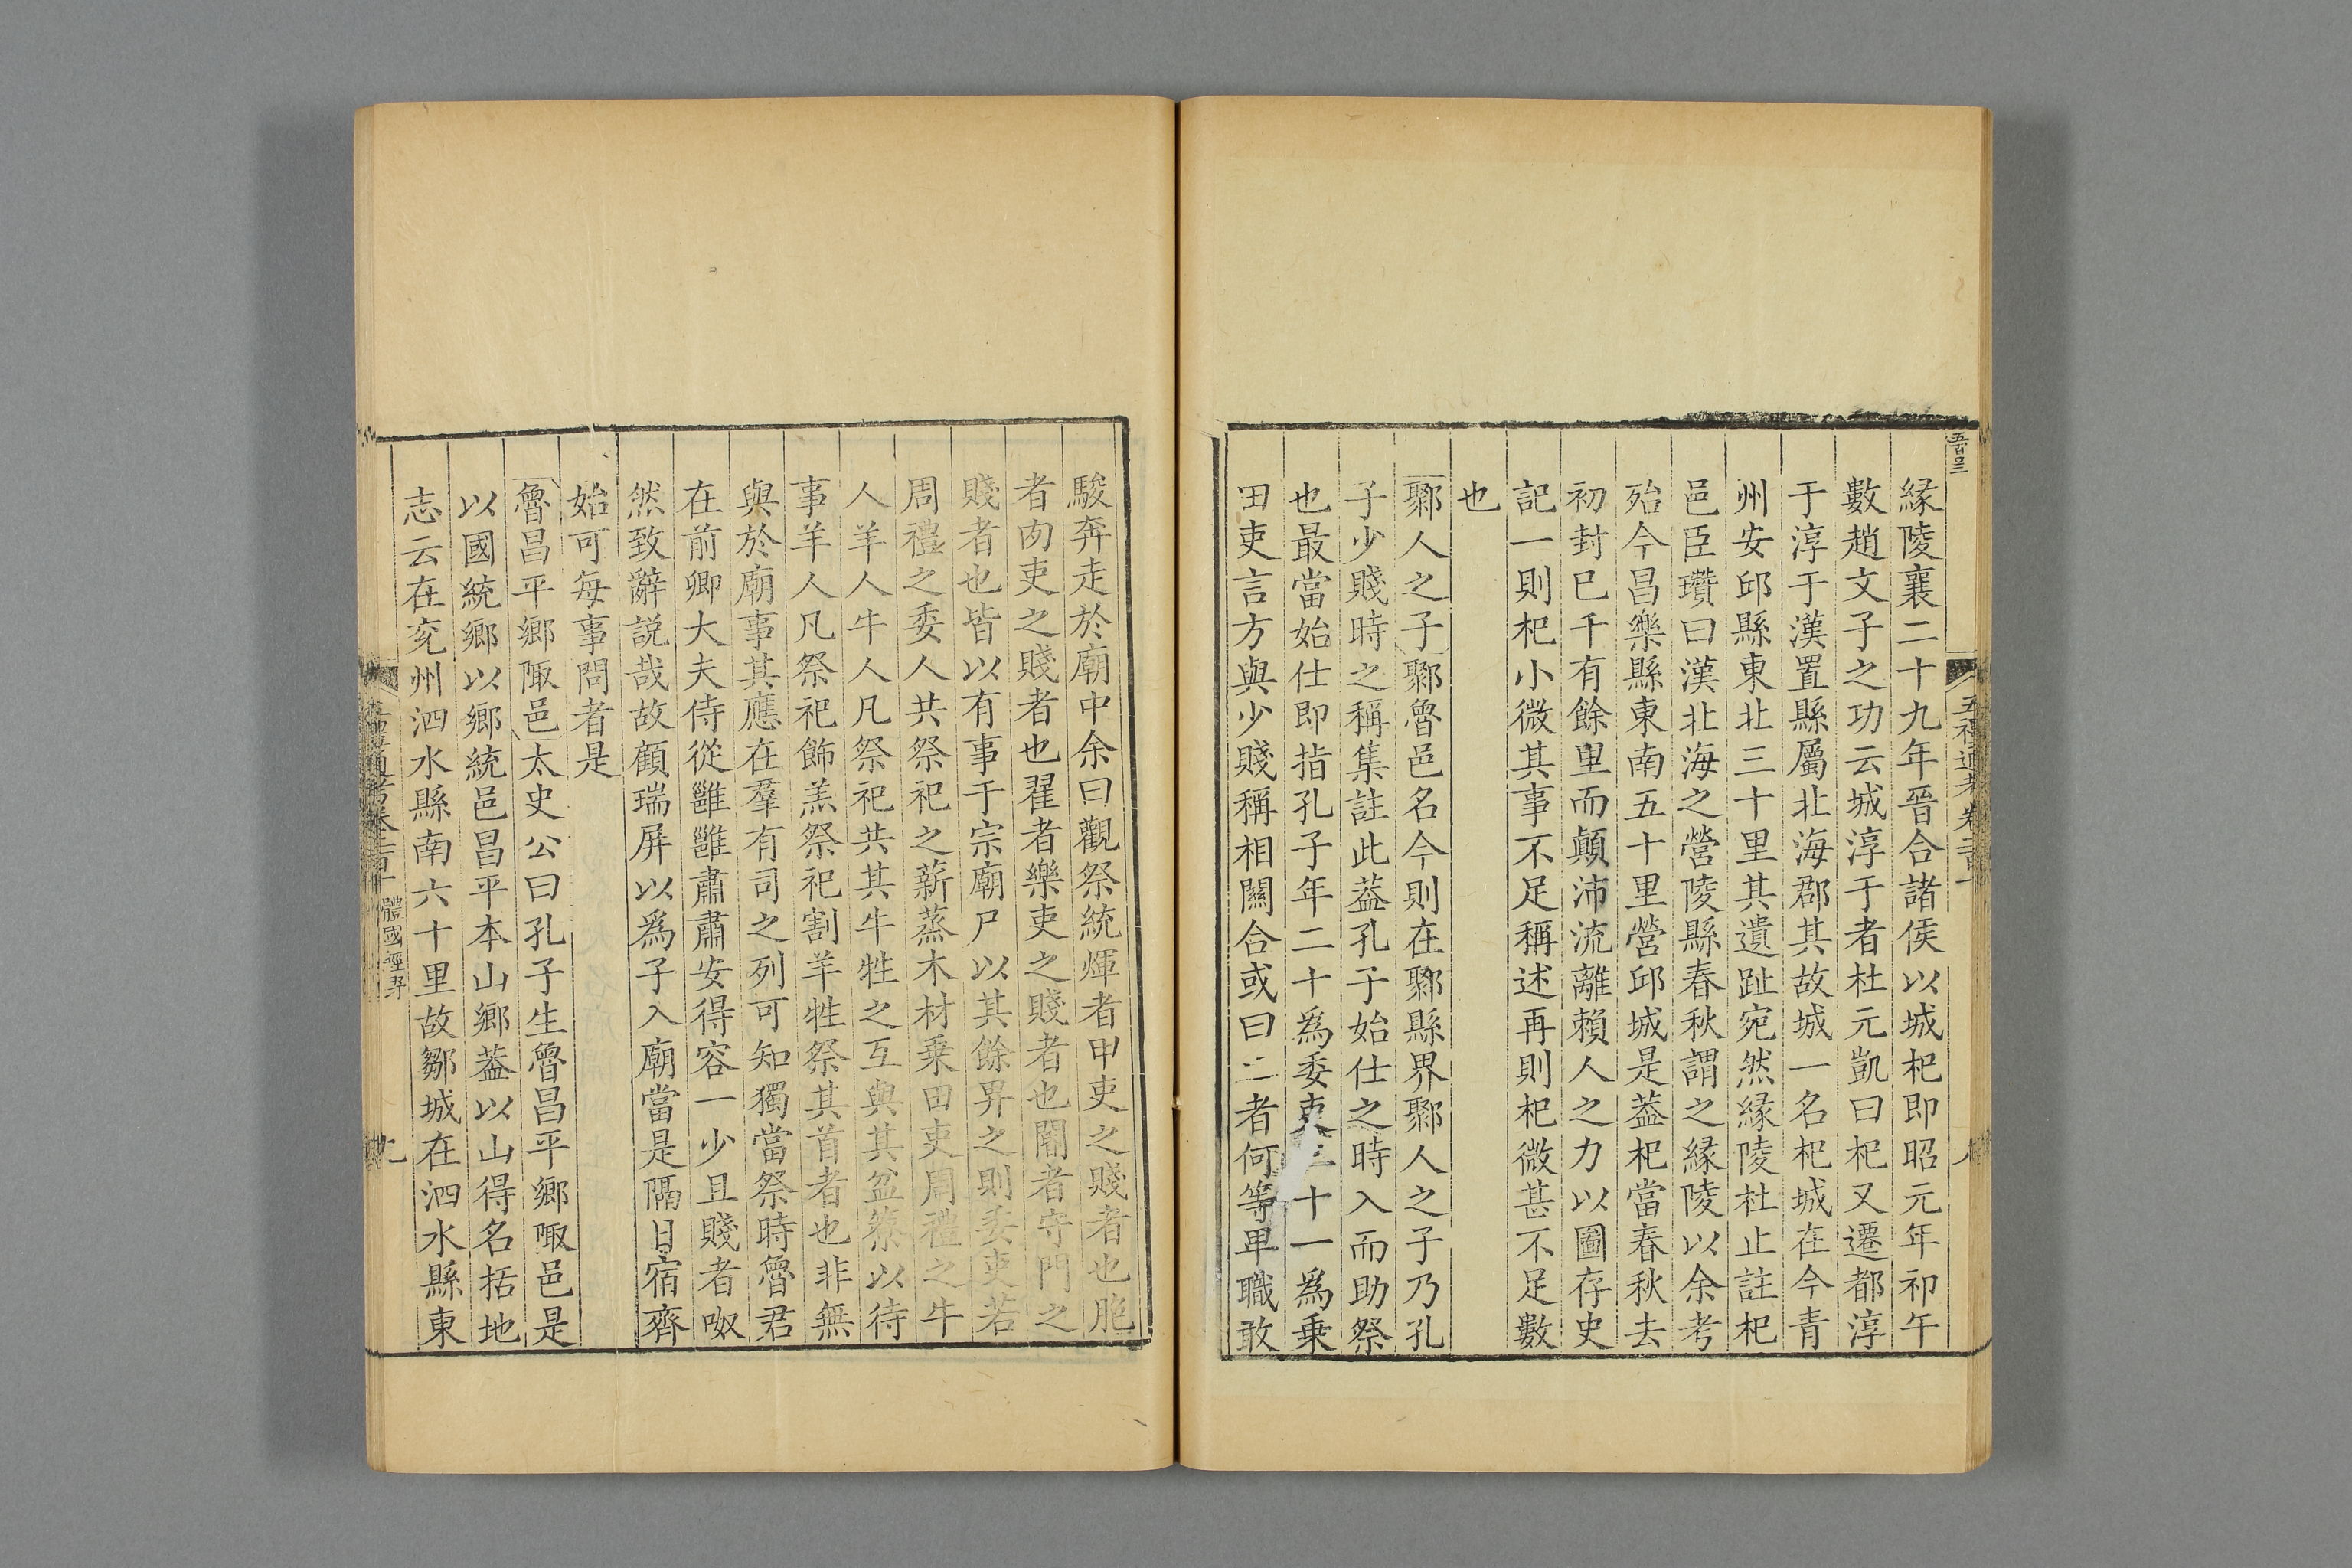 緣陵襄二十九年晉合諸侯以城杞即昭元年祁午
數趙文子之功云城淳于者杜元凱曰杞又遷都淳
于淳于漢置縣屬北海郡其故城一名杞城在今青
州安邱縣東北三十里其遺趾宛然緣陵杜止註杞
邑臣瓚曰漢北海之營陵縣春秋謂之緣陵以余考
殆今昌樂縣東南五十里營邱城是葢杞當春秋去
初封已千有餘里而顛沛流離賴人之力以圖存史
記一則杞小微其事不足稱述再則杞微甚不足數
也
鄹人之子鄹魯邑名今則在鄹縣界鄹人之子乃孔
子少賤時之稱集註此葢孔子始仕之時入而助祭
也最當始仕即指孔子年二十為委吏二十一為乗
田吏言方與少賤稱相關合或曰二者何等卑職敢
駿奔走於廟中余曰觀祭統煇者甲吏之賤者也胞
者肉吏之賤者也翟者樂吏之賤者也閽者守門之
賤者也皆以有事于宗廟尸以其餘畀之則委吏若
周禮之委人共祭祀之薪蒸木材乗田吏周禮之牛
人羊人牛人凡祭祀共其牛牲之互與其盆簝以待
事羊人凡祭祀飾羔祭祀割羊牲祭其首者也非無
與於廟事其應在羣有司之列可知獨當祭時魯君
在前卿大夫侍從雝雝肅肅安得容一少且賤者呶
然致辭説哉故顧瑞屏以為子入廟當是隔日宿齊
始可每事問者是
魯昌平鄉陬邑太史公曰孔子生魯昌平鄉陬邑是
以國統鄉以鄉統邑昌平本山鄉葢以山得名括地
志云在兖州泗水縣南六十里故鄒城在泗水縣東
體國經野
九